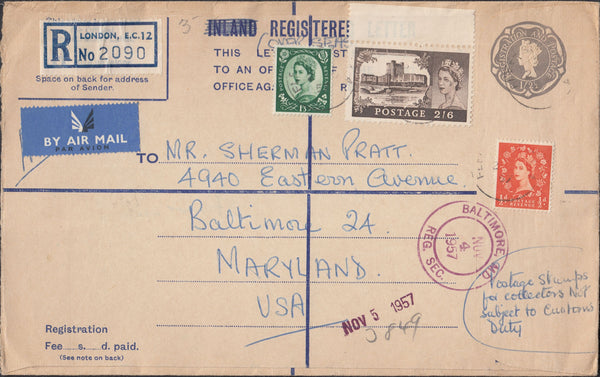 LONDON, E.C.12
R No 2090
Space on back for address
of Sender.
INLAND REGISTERED LETTER
THIS LE
TO AN OF
OFFICE AG
POSTAGE 2/6
POSTAGE
REVENUE
½d
BY AIR MAIL
PAR AVION
TO MR. SHERMAN PRATT.
4940 Eastern Avenue
Baltimore 24
MARYLAND.
USA
BALTIMORE, MD.
NOV
4
1957
REG. SEC.
NOV 5 1957
3849
Postage Stamps
for collectors Not
subject to Customs
Duty
Registration
Fee s. d. paid.
(See note on back)